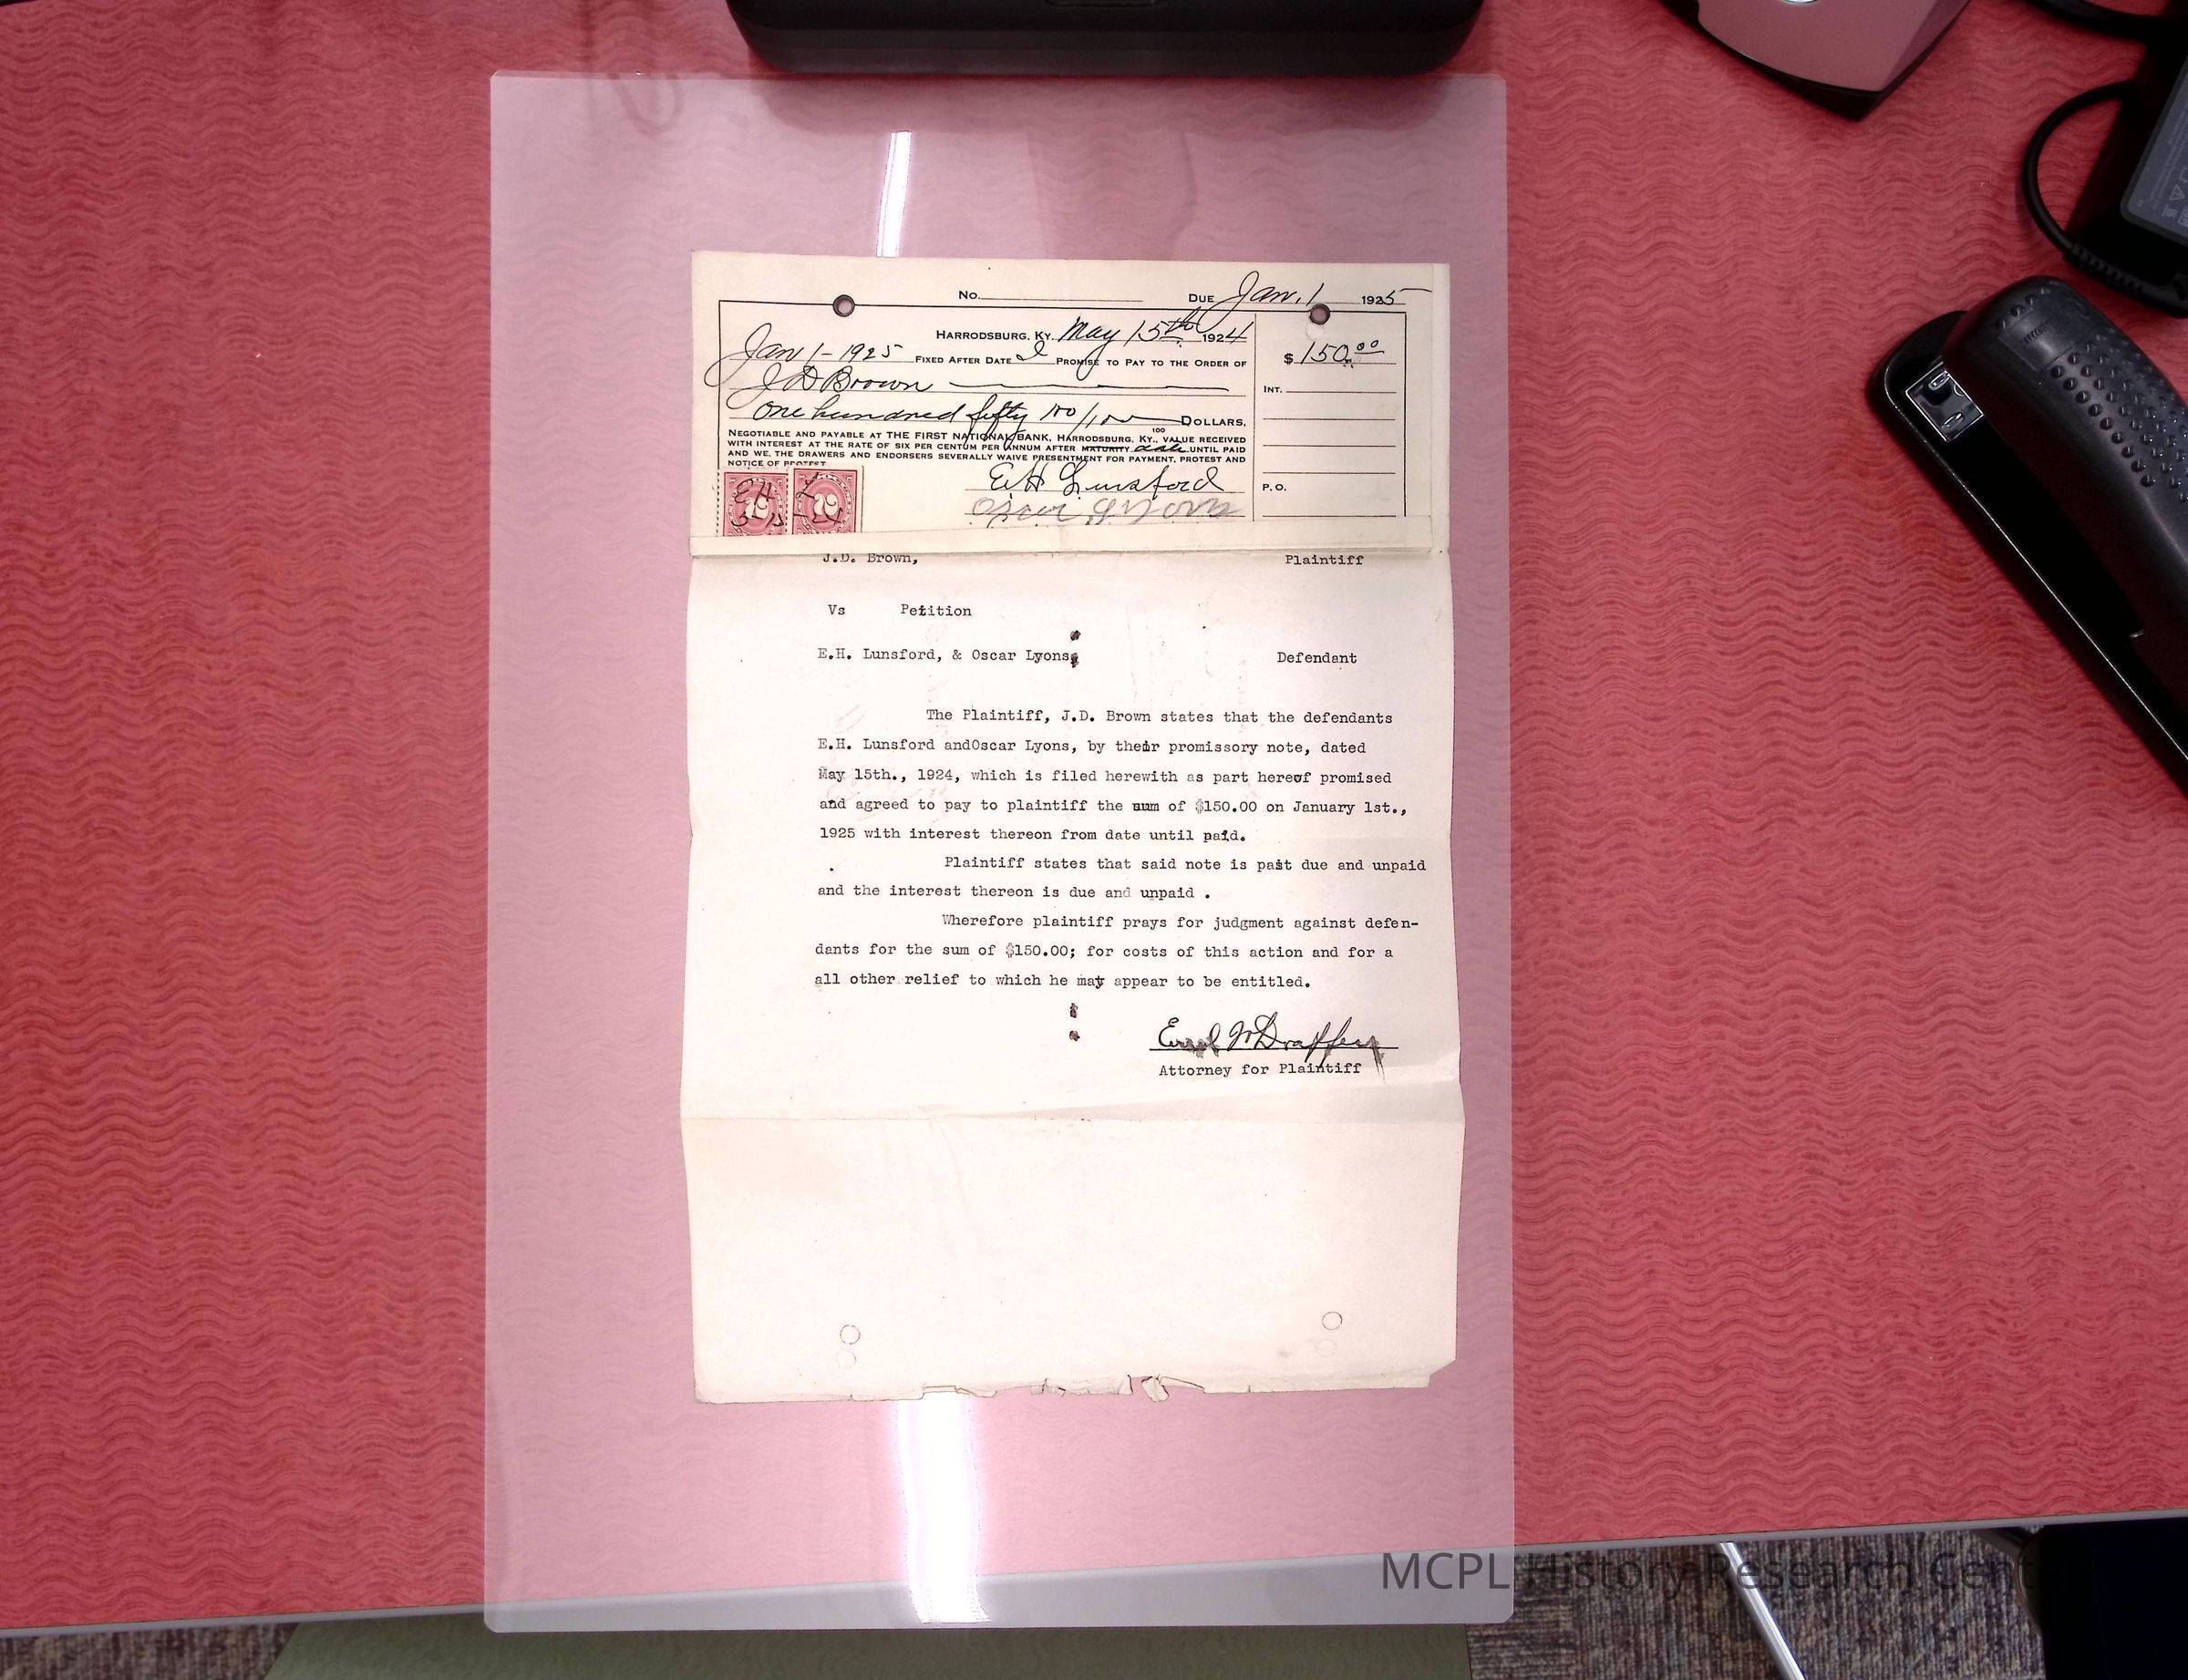 No. DUE Jan. 1 1925
HARRODSBURG, KY. May 15th 1924
Jan 1-1925 FIXED AFTER DATE I PROMISE TO PAY TO THE ORDER OF $150.00
J D Brown
INT.
One hundred fifty 100/100 DOLLARS.
100
NEGOTIABLE AND PAYABLE AT THE FIRST NATIONAL BANK, HARRODSBURG, KY., VALUE RECEIVED
WITH INTEREST AT THE RATE OF SIX PER CENTUM PER ANNUM AFTER MATURITY date UNTIL PAID
AND WE, THE DRAWERS AND ENDORSERS SEVERALLY WAIVE PRESENTMENT FOR PAYMENT, PROTEST AND
NOTICE OF PROTEST
EH L
E H Lunsford
P. O.
Oscar Lyons
J.D. Brown, Plaintiff
Vs Petition
E.H. Lunsford, & Oscar Lyons, Defendant
The Plaintiff, J.D. Brown states that the defendants
E.H. Lunsford andOscar Lyons, by their promissory note, dated
May 15th., 1924, which is filed herewith as part hereof promised
and agreed to pay to plaintiff the sum of $150.00 on January 1st.,
1925 with interest thereon from date until paid.
Plaintiff states that said note is past due and unpaid
and the interest thereon is due and unpaid .
Wherefore plaintiff prays for judgment against defen-
dants for the sum of $150.00; for costs of this action and for a
all other relief to which he may appear to be entitled.
Errol W Draffen
Attorney for Plaintiff
MCPL History Research Cent